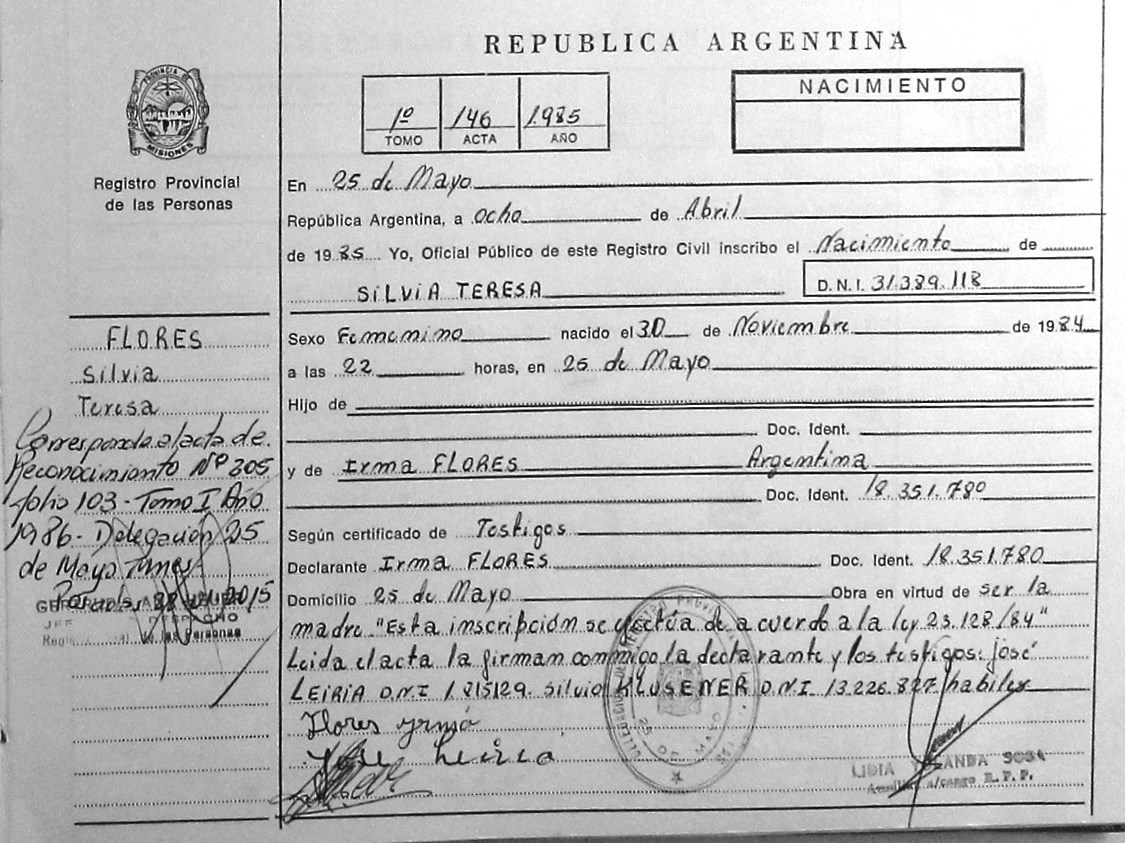 REPUBLICA ARGENTINA
PROVINCIA DE
MISIONES
Registro Provincial
de las Personas
1º 146 1985
TOMO ACTA AÑO
NACIMIENTO
En 25 de Mayo
República Argentina, a ocho de Abril
de 1985 Yo, Oficial Público de este Registro Civil inscribo el Nacimiento de
SILVIA TERESA D.N.I. 31.389.118
FLORES
Silvia
Teresa
Corresponde al acta de
Reconocimiento Nº 205
folio 103 - Tomo I Año
1986 - Delegación 25
de Mayo
Posadas 2015
DESPACHO
de las Personas
Sexo Femenino nacido el 30 de Noviembre de 1984
a las 22 horas, en 25 de Mayo
Hijo de
Doc. Ident.
y de Irma FLORES Argentina
Doc. Ident. 18.351.780
Según certificado de Testigos
Declarante Irma FLORES Doc. Ident. 18.351.780
Domicilio 25 de Mayo Obra en virtud de ser la
madre "Esta inscripción se efectúa de acuerdo a la ley 23.128/84"
Leida el acta la firman conmigo la declarante y los testigos: José
LEIRIA D.N.I 1.815129. Silvio KLUSENER D.N.I 13.226.827 habiles
Flores yrma
José Leiria
25 DE MAYO
LIDIA YOLANDA SOSA
a/cargo R. P. P.